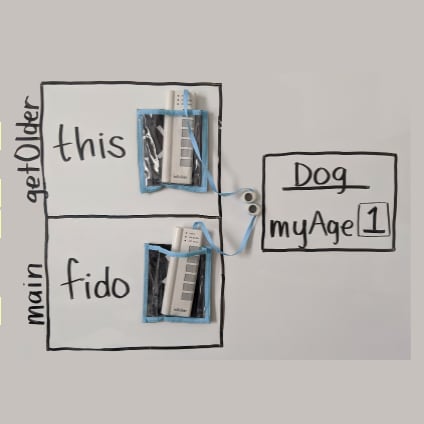 getOlder
this
main
fido
Dog
myAge 1